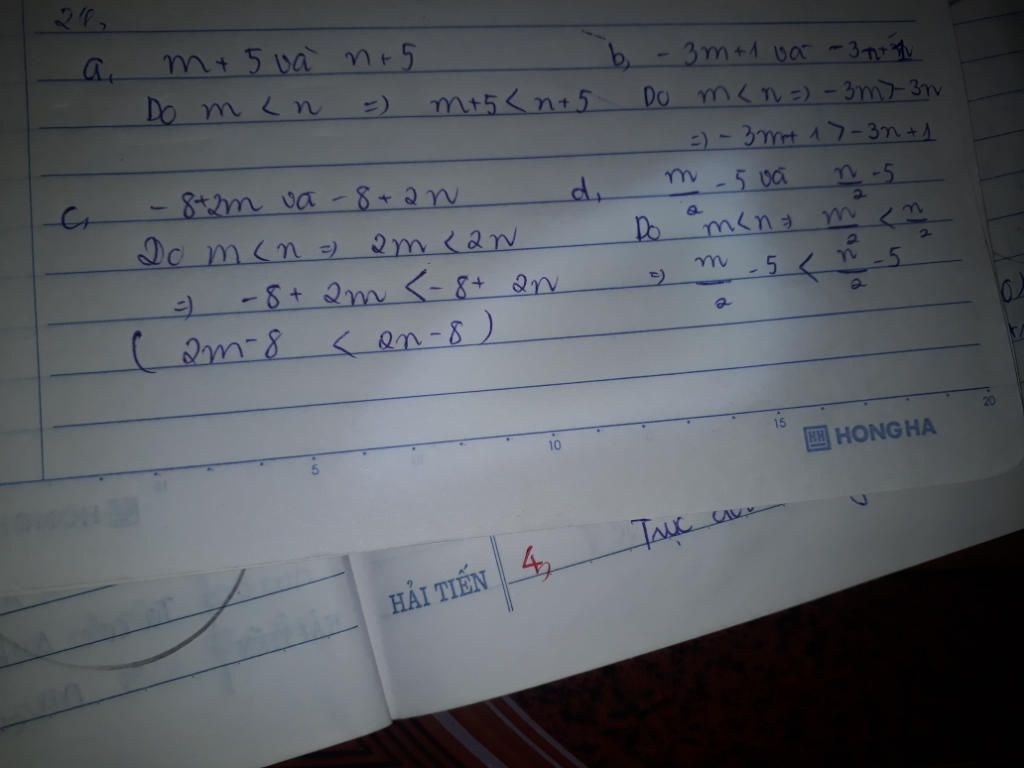 24,
a, m + 5 và n + 5
Do m < n => m+5 < n+5
b, - 3m+1 và - 3n+1
Do m < n => - 3m > - 3n
=> - 3m+ 1 > - 3n + 1
c, - 8+2m và - 8 + 2n
Do m < n => 2m < 2n
=> - 8 + 2m < - 8 + 2n
( 2m - 8 < 2n - 8 )
d, m/2 - 5 và n/2 - 5
Do m < n => m/2 < n/2
=> m/2 - 5 < n/2 - 5
5 10 15 20
HH HONG HA
HẢI TIẾN
4,
Trục